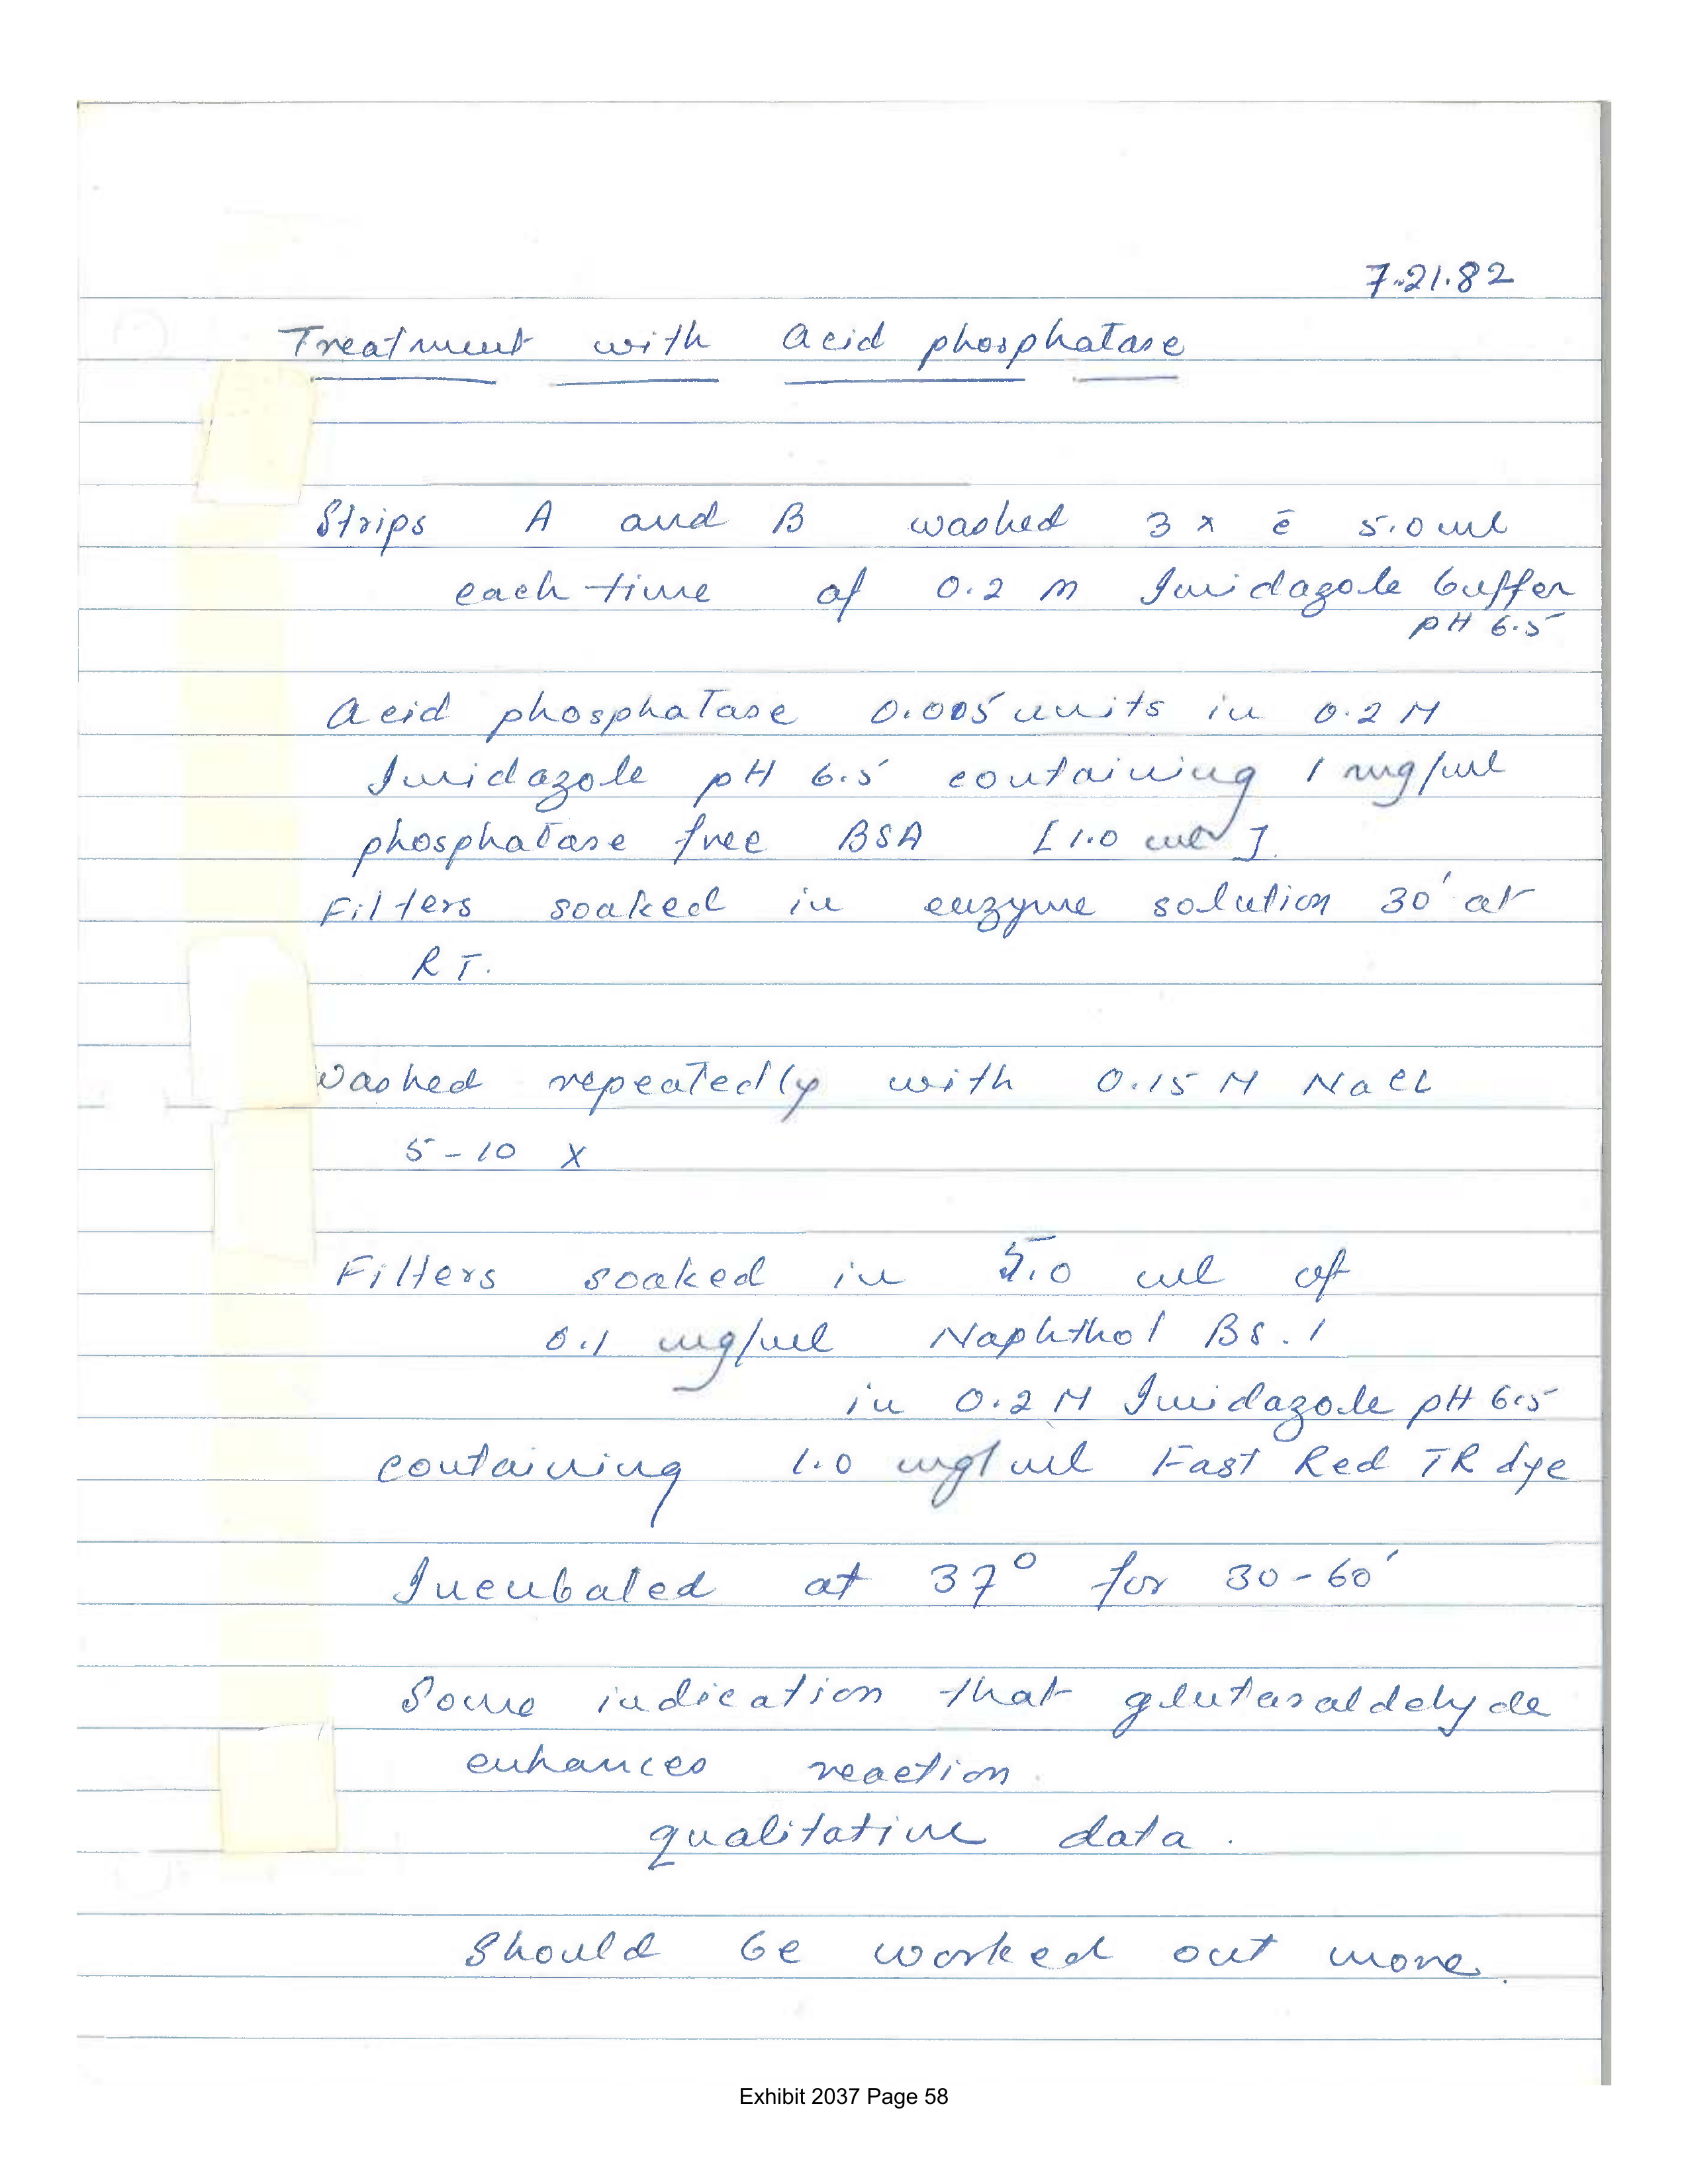 7.21.82
Treatment with acid phosphatase
Strips A and B washed 3 x c̄ 5.0 ml
each time of 0.2 M Imidazole buffer
pH 6.5
Acid phosphatase 0.005 units in 0.2 M
Imidazole pH 6.5 containing 1 mg/ml
phosphatase free BSA [1.0 ml]
Filters soaked in enzyme solution 30' at
RT.
Washed repeatedly with 0.15 M NaCl
5-10 X
Filters soaked in 5.0 ml of
0.1 mg/ml Naphthol BS.1
in 0.2 M Imidazole pH 6.5
containing 1.0 mg/ml Fast Red TR dye
Incubated at 37° for 30-60'
Some indication that glutaraldehyde
enhances reaction.
qualitative data.
Should be worked out more.
Exhibit 2037 Page 58